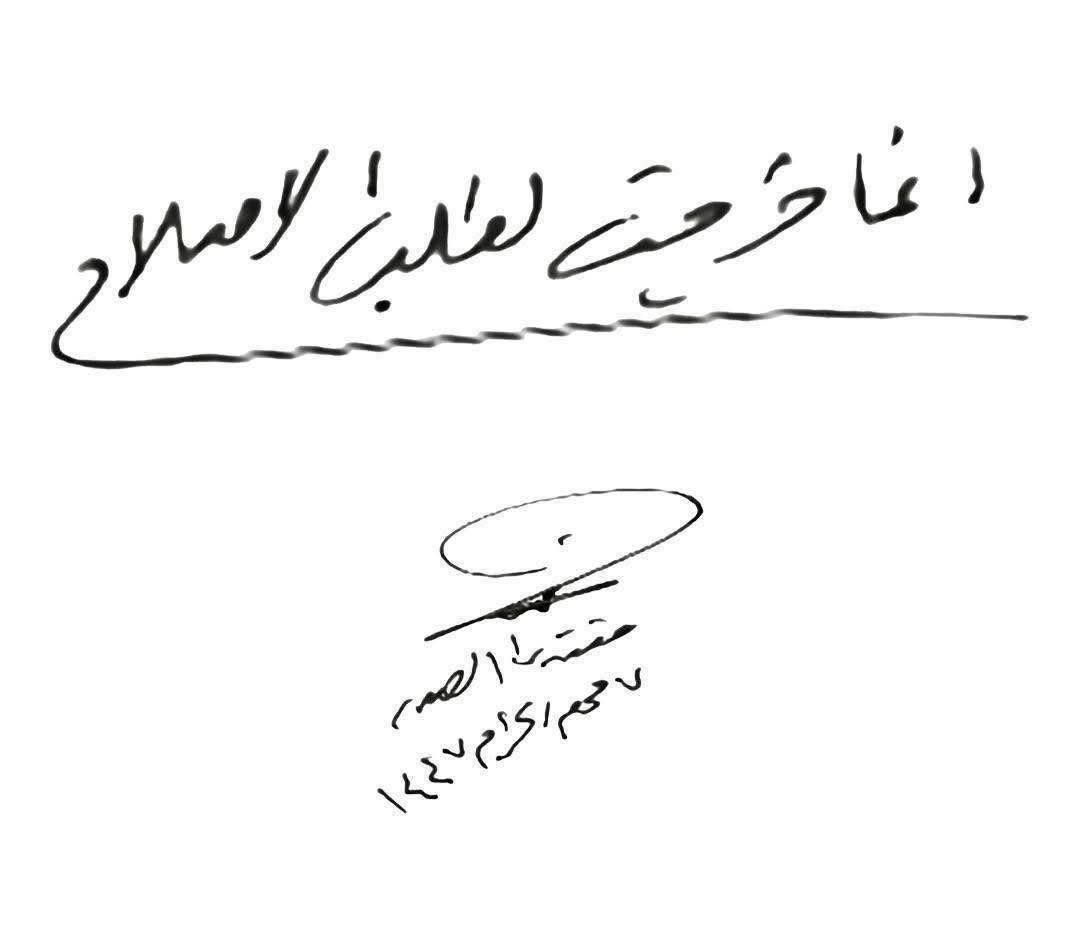 انما خرجت لطلب الاصلاح
مقتدى الصدر
٧ محرم الحرام ١٤٤٧